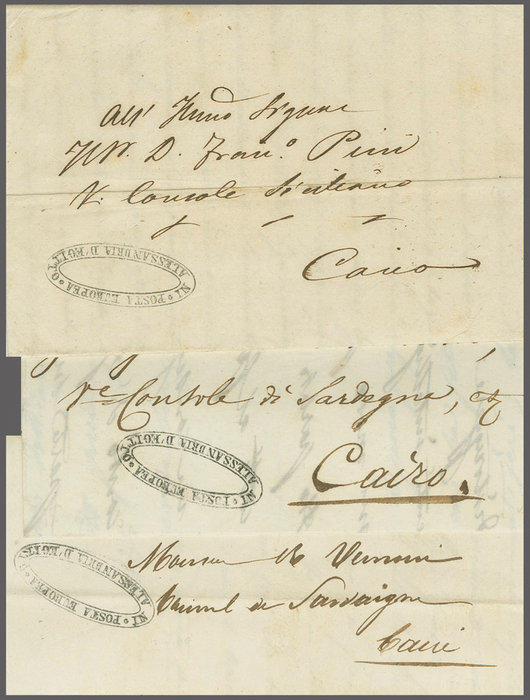 All' Illmo Signore
D. Franco. Pini
V. Console Siciliano
Cairo
POSTA EUROPEA IN ALESSANDRIA D'EGITTO
Ve Console di Sardegna,
Cairo.
POSTA EUROPEA IN ALESSANDRIA D'EGITTO
Monsieur
de Sardaigne
Caire
POSTA EUROPEA IN ALESSANDRIA D'EGIT